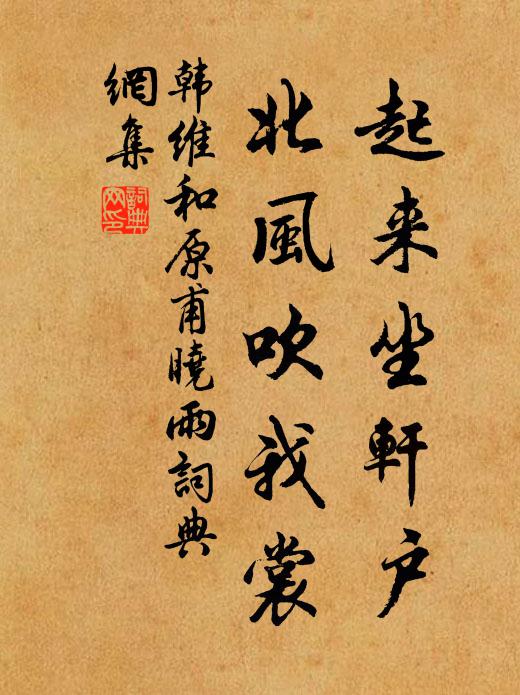 起来坐軒户
北風吹我裳
韩維和原甫曉雨詞典
網集
詞典
网印